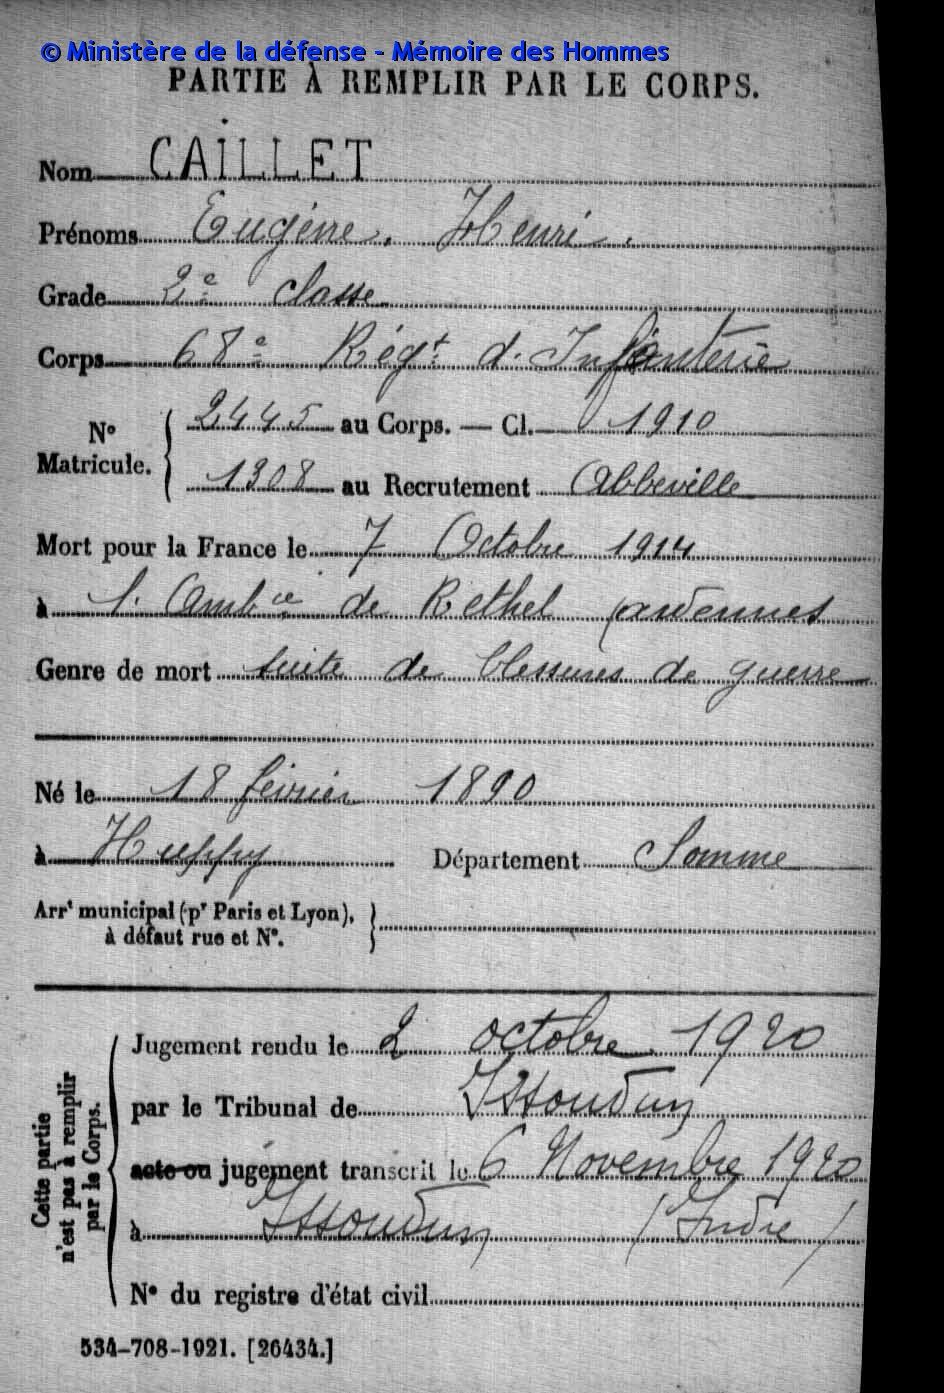 © Ministère de la défense - Mémoire des Hommes
PARTIE À REMPLIR PAR LE CORPS.
Nom CAILLET
Prénoms Eugène, Henri.
Grade 2e classe
Corps 68e Régt d'Infanterie
No Matricule. { 2445 au Corps. — Cl. 1910
1308 au Recrutement Abbeville
Mort pour la France le 7 Octobre 1914
à l'Ambce de Rethel (ardennes
Genre de mort suite de blessures de guerre
Né le 18 février 1890
à Huppy Département Somme
Arrt municipal (pr Paris et Lyon), }
à défaut rue et N°.
Cette partie n'est pas à remplir par le Corps.
Jugement rendu le 2 octobre 1920
par le Tribunal de Issoudun
acte ou jugement transcrit le 6 Novembre 1920
à Issoudun (Indre)
N° du registre d'état civil
534-708-1921. [26434.]